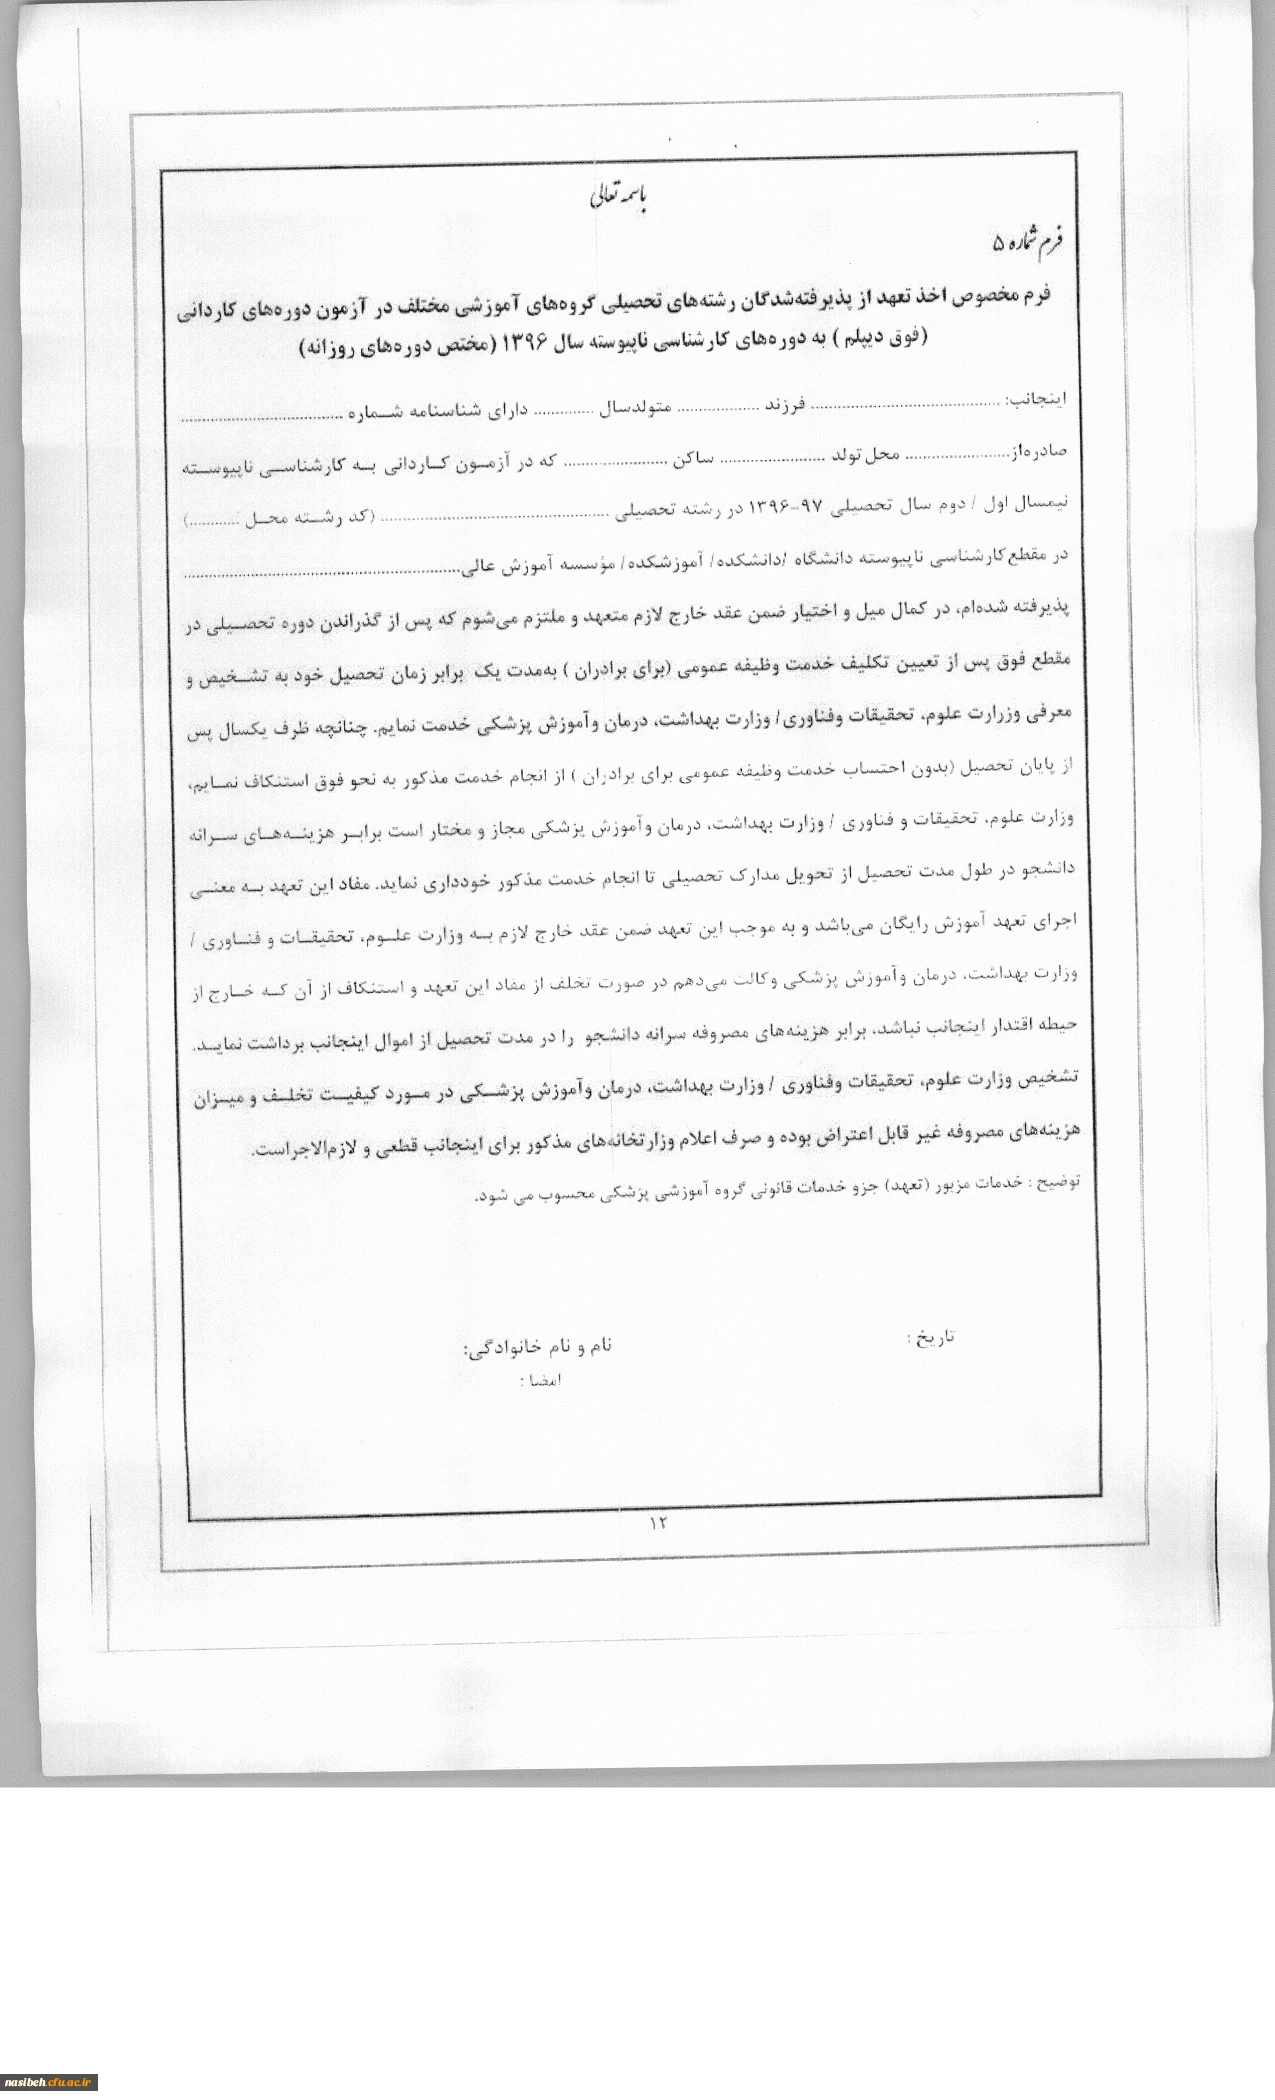 باسمه تعالی
فرم شماره ۵
فرم مخصوص اخذ تعهد از پذیرفته‌شدگان رشته‌های تحصیلی گروه‌های آموزشی مختلف در آزمون دوره‌های کاردانی
(فوق دیپلم ) به دوره‌های کارشناسی ناپیوسته سال ۱۳۹۶ (مختص دوره‌های روزانه)
اینجانب: .......................................... فرزند .................. متولدسال ............. دارای شناسنامه شماره ....................................
صادره‌از....................... محل‌تولد ....................... ساکن ....................... که در آزمون کاردانی به کارشناسی ناپیوسته
نیمسال اول / دوم سال تحصیلی ۹۷-۱۳۹۶ در رشته تحصیلی .................................................. (کد رشته محل ...........)
در مقطع‌کارشناسی ناپیوسته دانشگاه /دانشکده/ آموزشکده/ مؤسسه آموزش عالی.............................................................
پذیرفته شده‌ام، در کمال میل و اختیار ضمن عقد خارج لازم متعهد و ملتزم می‌شوم که پس از گذراندن دوره تحصیلی در
مقطع فوق پس از تعیین تکلیف خدمت وظیفه عمومی (برای برادران ) به‌مدت یک برابر زمان تحصیل خود به تشخیص و
معرفی وزرارت علوم، تحقیقات وفناوری/ وزارت بهداشت، درمان وآموزش پزشکی خدمت نمایم. چنانچه ظرف یکسال پس
از پایان تحصیل (بدون احتساب خدمت وظیفه عمومی برای برادران ) از انجام خدمت مذکور به نحو فوق استنکاف نمایم،
وزارت علوم، تحقیقات و فناوری / وزارت بهداشت، درمان وآموزش پزشکی مجاز و مختار است برابر هزینه‌های سرانه
دانشجو در طول مدت تحصیل از تحویل مدارک تحصیلی تا انجام خدمت مذکور خودداری نماید. مفاد این تعهد به معنی
اجرای تعهد آموزش رایگان می‌باشد و به موجب این تعهد ضمن عقد خارج لازم به وزارت علوم، تحقیقات و فناوری /
وزارت بهداشت، درمان وآموزش پزشکی وکالت می‌دهم در صورت تخلف از مفاد این تعهد و استنکاف از آن که خارج از
حیطه اقتدار اینجانب نباشد، برابر هزینه‌های مصروفه سرانه دانشجو را در مدت تحصیل از اموال اینجانب برداشت نماید.
تشخیص وزارت علوم، تحقیقات وفناوری / وزارت بهداشت، درمان وآموزش پزشکی در مورد کیفیت تخلف و میزان
هزینه‌های مصروفه غیر قابل اعتراض بوده و صرف اعلام وزارتخانه‌های مذکور برای اینجانب قطعی و لازم‌الاجراست.
توضیح : خدمات مزبور (تعهد) جزو خدمات قانونی گروه آموزشی پزشکی محسوب می شود.
تاریخ : نام و نام خانوادگی:
امضا :
۱۲
nasibeh.cfu.ac.ir